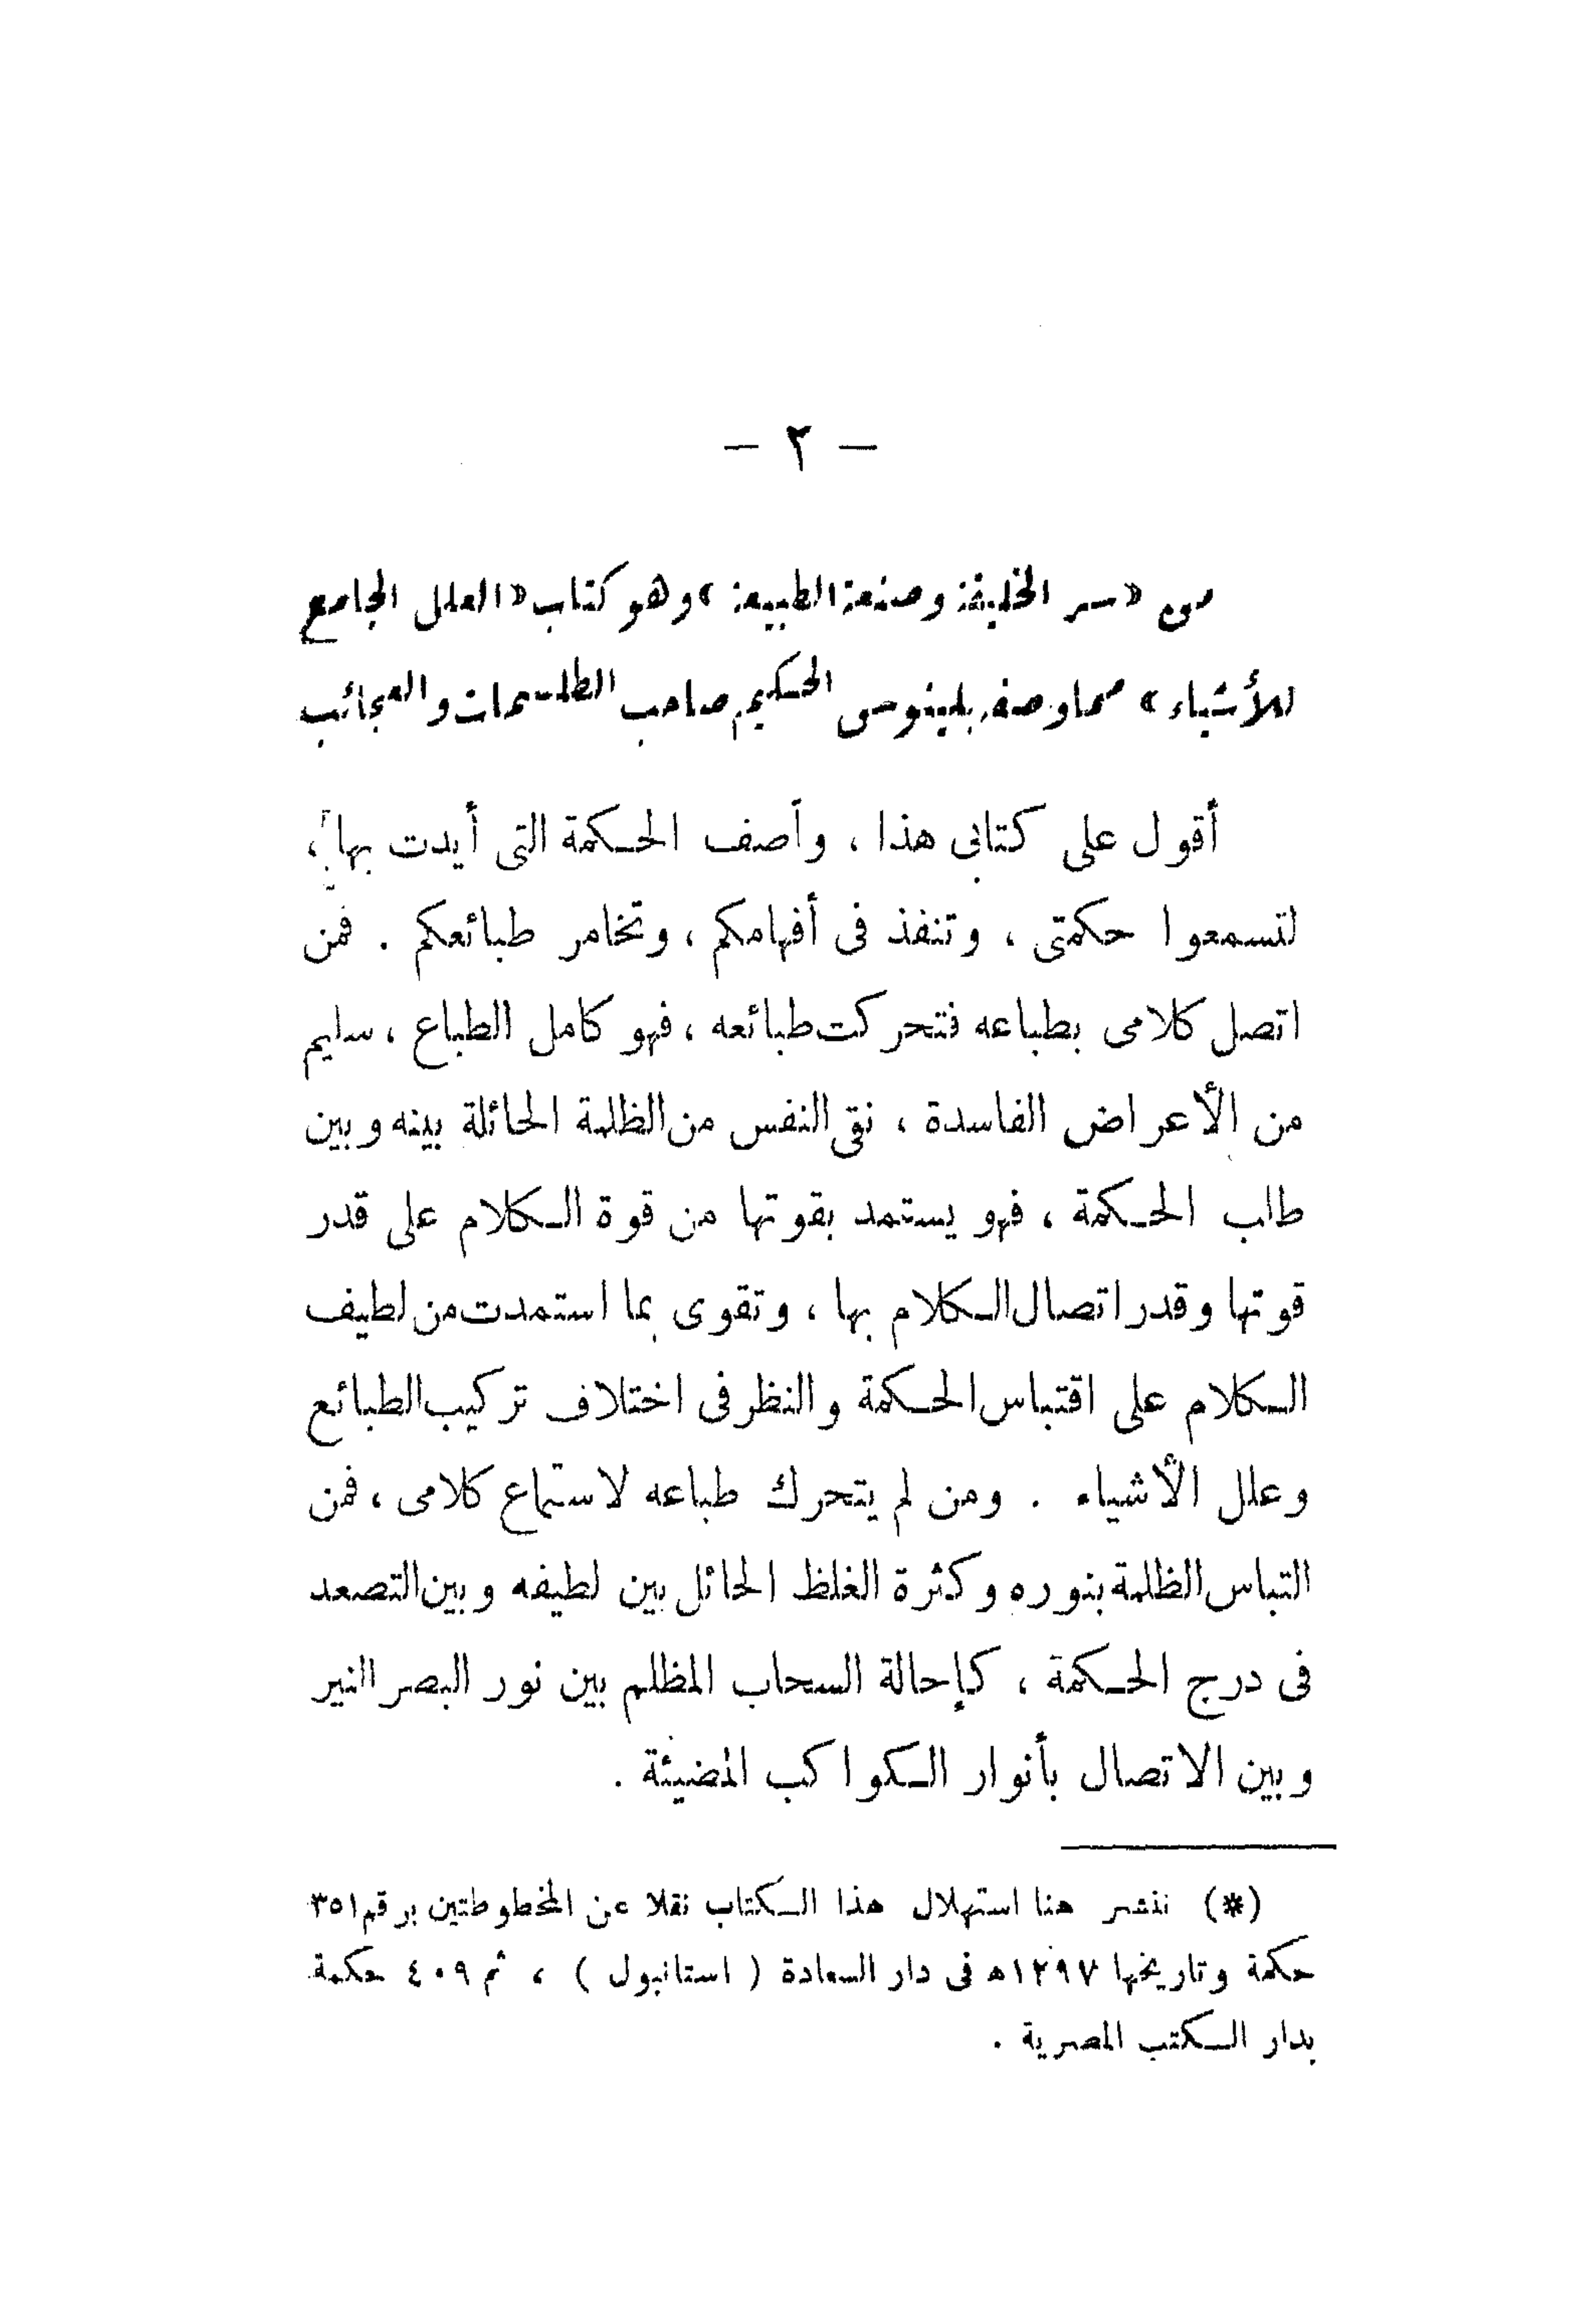 — ٢ —
من «سر الخليقة وصنعة الطبيعة» وهو كتاب «العلل الجامع
للأشياء» مما وصفه بلينوس الحكيم صاحب الطلسمات والعجائب
أقول على كتابى هذا ، وأصف الحكمة التى أيدت بها ،
لتسمعوا حكمتى ، وتنفذ فى أفهامكم ، وتخامر طبائعكم . فمن
اتصل كلامى بطباعه فتحركت طبائعه ، فهو كامل الطباع ، سليم
من الأعراض الفاسدة ، نقى النفس من الظلمة الحائلة بينه وبين
طلب الحكمة ، فهو يستمد بقوتها من قوة الكلام على قدر
قوتها وقدر اتصال الكلام بها ، وتقوى بما استمدت من لطيف
الكلام على اقتباس الحكمة والنظر فى اختلاف تركيب الطبائع
وعلل الأشياء . ومن لم يتحرك طباعه لاستماع كلامى ، فمن
التباس الظلمة بنوره وكثرة الغلظ الحائل بين لطيفه وبين التصعد
فى درج الحكمة ، كإحالة السحاب المظلم بين نور البصر النير
وبين الاتصال بأنوار الكواكب المضيئة .
(*) ننشر هنا استهلال هذا الكتاب نقلا عن المخطوطتين برقم ٣٥١
حكمة وتاريخها ١٢٩٧ه فى دار السعادة ( استانبول ) ، ثم ٤٠٩ حكمة
بدار الكتب المصرية .